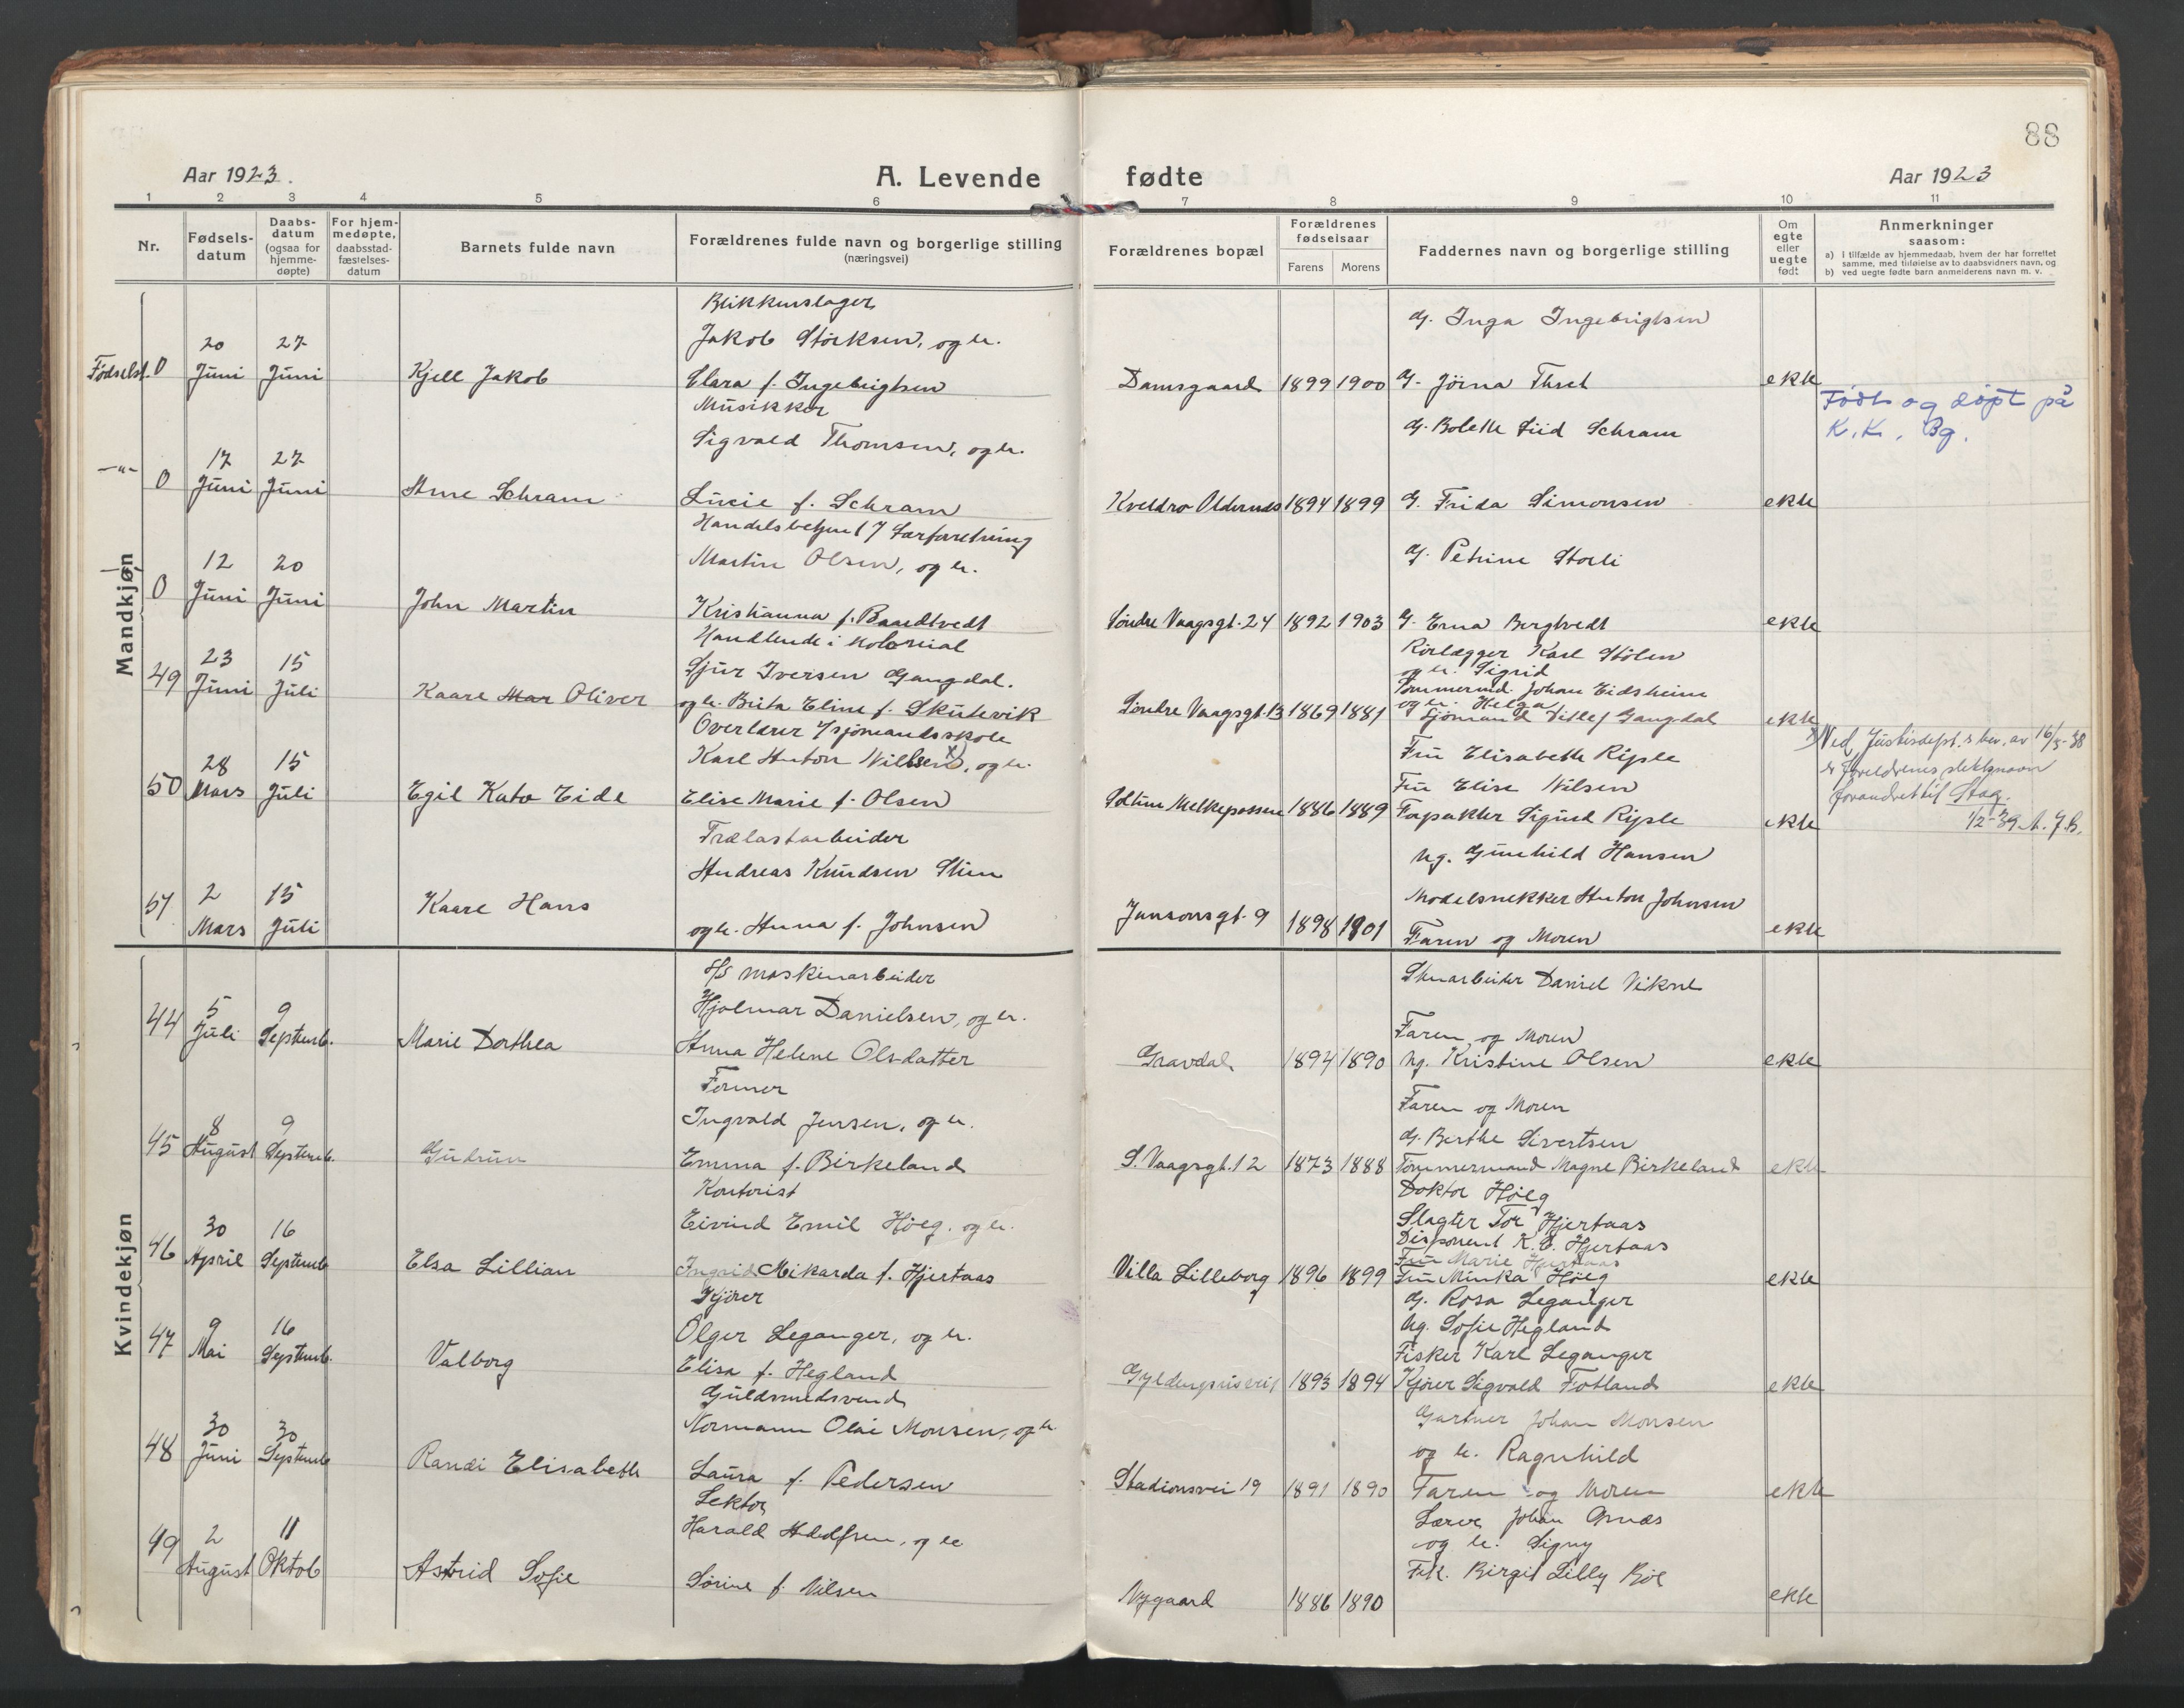 88
Aar 1923.
A. Levende fødte
Aar 1923
1 2 3 4 5 6 7 8 9 10 11
Nr.
Fødsels-
datum
Daabs-
datum
(ogsaa for
hjemme-
døpte)
For hjem-
medøpte,
daabsstad-
fæstelses-
datum
Barnets fulde navn
Forældrenes fulde navn og borgerlige stilling
(næringsvei)
Forældrenes bopæl
Forældrenes
fødselsaar
Farens Morens
Faddernes navn og borgerlige stilling
Om
egte
eller
uegte
født
Anmerkninger
saasom:
a) i tilfælde av hjemmedaab, hvem der har forrettet
samme, med tilføielse av to daabsvidners navn, og
b) ved uegte fødte barn anmelderens navn m. v.
Mandkjøn
Fødselst. 0
20 Juni
27 Juni
Kjell Jakob
Blikkenslager
Jakob Störksen, og h.
Clara f. Ingebrigtsen
Damsgaard
1899 1900
G. Inga Ingebrigtsen
G. Jörna
ekte
Født og døpt på
K.K. Bg.
—"— 0
17 Juni
27 Juni
Arne Schram
Musikker
Sigvald Thomsen, og h.
Lucie f. Schram
1894 1899
G. Bolette Schram
G. Frida Simonsen
ekte
0
12 Juni
20 Juni
John Martin
Martin Olsen, og h.
Kristianna f. Baardtvedt
Söndre Vaagsgt. 24
1892 1903
G. Petrine Storli
G. Erna Bergtvedt
ekte
49
23 Juni
15 Juli
Kaare Mar Oliver
Handlende i kolonial
Sjur Iversen Gangdal.
og h. Brita Eline f. Skutevik
Söndre Vaagsgt. 13
1869 1881
Rörlægger Karl Stölen
og h. Sigrid
Tömmermd. Johan Eidsheim
og h. Helga
Sjömand Ditlef Gangdal
ekte
50
28 Mars
15 Juli
Egil Kato Eide
Overlærer v/sjömandsskole
Karl Anton Nilsen x), og h.
Elise Marie f. Olsen
Soltun Melkeplassen
1886 1889
Fru Elisabeth Riple
Fru Elise Nilsen
Forpakter Sigurd Riple
ekte
x) Ved Justisdept.s bev. av 16/5-38
er foreldrenes slektsnavn
forandret til Stag.
1/2-39. A. J. B.
51
2 Mars
15 Juli
Kaare Hans
Trælastarbeider
Andreas Knudsen Stien
og h. Anna f. Johnsen
Jansonsgt. 9
1898 1901
Ug. Gunhild Hansen
Modelsnekker Anton Johnsen
Faren og Moren
ekte
Kvindekjøn
44
5 Juli
9 Septemb.
Marie Dorthea
maskinarbeider
Hjalmar Danielsen, og h.
Anna Helene Olsdatter
Gravdal
1894 1890
Stenarbeider Daniel Vikne
Faren og Moren
Ug. Kristine Olsen
ekte
45
8 August
9 Septemb.
Gudrun
Former
Ingvald Jensen, og h.
Emma f. Birkeland
S. Vaagsgt. 12
1873 1888
Faren og Moren
G. Berthe Sivertsen
Tömmermand Magne Birkeland
ekte
46
30 April
16 Septemb
Elsa Lillian
Kontorist
Eivind Emil Höeg, og h.
Ingrid Mikarda f. Hjertaas
Villa Lilleborg
1896 1899
Doktor Höeg
Slagter Tor Hjertaas
Disponent K. E. Hjertaas
Fru Marie Hjertaas
Fru Minka Höeg
ekte
47
9 Mai
16 Septemb.
Valborg
Kjörer
Olger Leganger, og h.
Elisa f. Hegland
Gyldenprisvei
1893 1894
G. Rosa Leganger
Ug. Sofie Hegland
Fisker Karl Leganger
Kjörer Sigvald Fotland
ekte
48
30 Juni
30 Septemb
Randi Elisabeth
Guldsmedsvend
Normann Olai Monsen, og h.
Laura f. Pedersen
Stadionsvei 19
1891 1890
Gartner Johan Monsen
og h. Ragnhild
Faren og Moren
ekte
49
2 August
11 Oktob
Astrid Sofie
Lektor
Harald Adolfsen, og h
Sörine f. Nilsen
Nygaard
1886 1890
Lærer Johan
og h. Signy
Frk. Birgit Lilly Böe
ekte